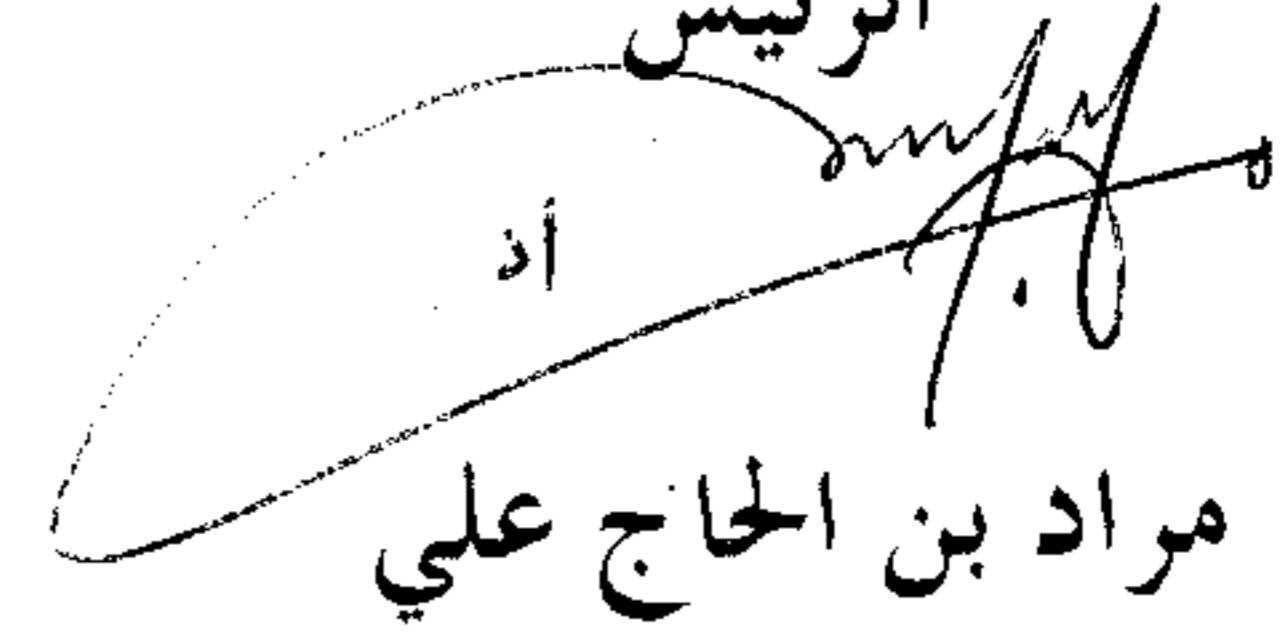 الرئيس
أذ
مراد بن الحاج علي